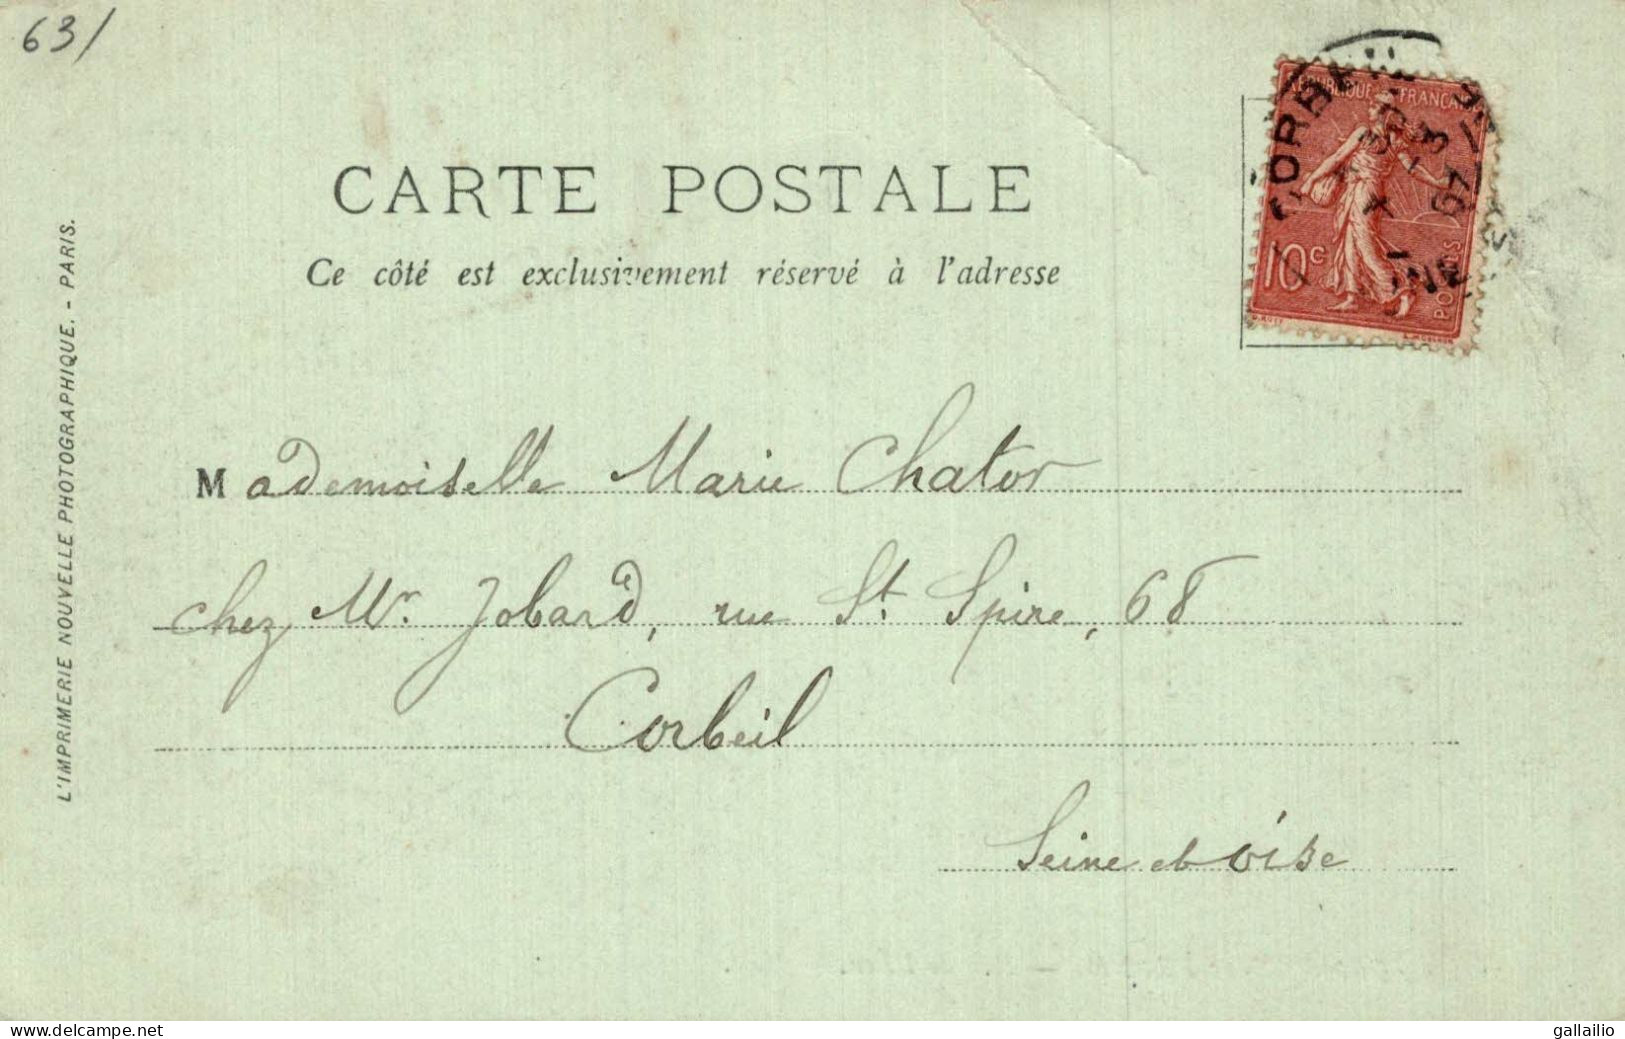 63/
CARTE POSTALE
Ce côté est exclusivement réservé à l'adresse
RÉPUBLIQUE FRANÇAISE
10c
POSTES
CORBEIL
L'IMPRIMERIE NOUVELLE PHOTOGRAPHIQUE. - PARIS.
Mademoiselle Marie Chator
chez Mr. Jobard, rue St. Spire, 68
Corbeil
Seine et Oise
www.delcampe.net
gallailio